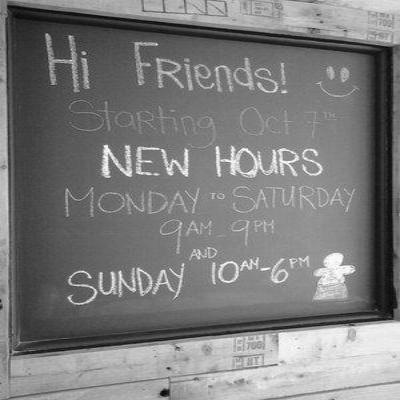 Hi Friends!
Starting Oct 7TH
NEW HOURS
MONDAY TO SATURDAY
9AM - 9PM
AND
SUNDAY 10AM-6PM